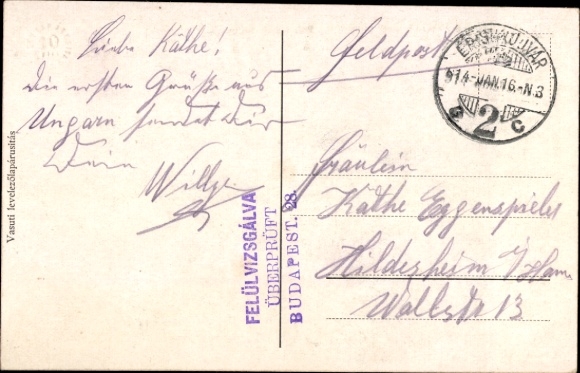 Liebe Käthe!
Die ersten Grüße aus
Ungarn sendet Dir
Dein
Willy
Feldpost
ÉRSEKUJVÁR
914-JAN.16.-N.3
2
C
Fräulein
Käthe
Hildesheim
Wallstr 13
FELÜLVIZSGÁLVA
ÜBERPRÜFT
BUDAPEST. 28.
Vasuti levelezőlapárusitás